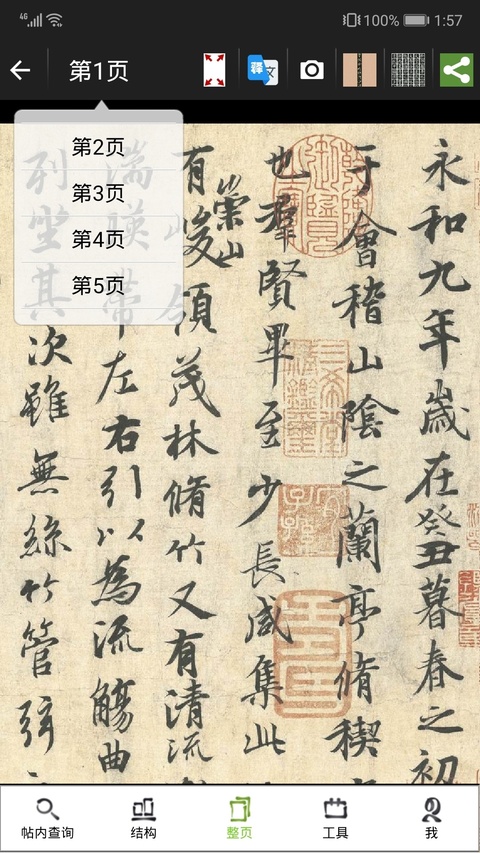 4G 100% 1:57
第1页
译 文
第2页
第3页
第4页
第5页
永和九年歲在癸丑暮春之初
于會稽山陰之蘭亭脩稧
也羣賢畢至少長咸集此
有崇山峻領茂林脩竹又有清流
湍暎帶左右引以為流觴曲
列坐其次雖無絲竹管弦
帖内查询 结构 整页 工具 我